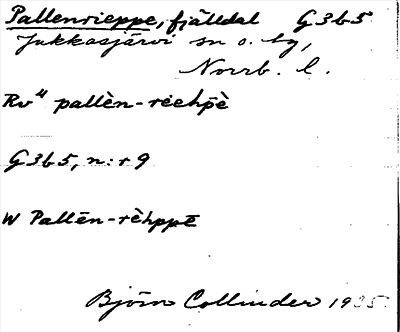 Pallenrieppe, fjälldal G3b5
Jukkasjärvi sn o. tg,
Norrb. l.
Rv" pallèn-rèehpè
G3b5, n:r 9
W Pallēn-rèhppē
Björn Collinder 1935